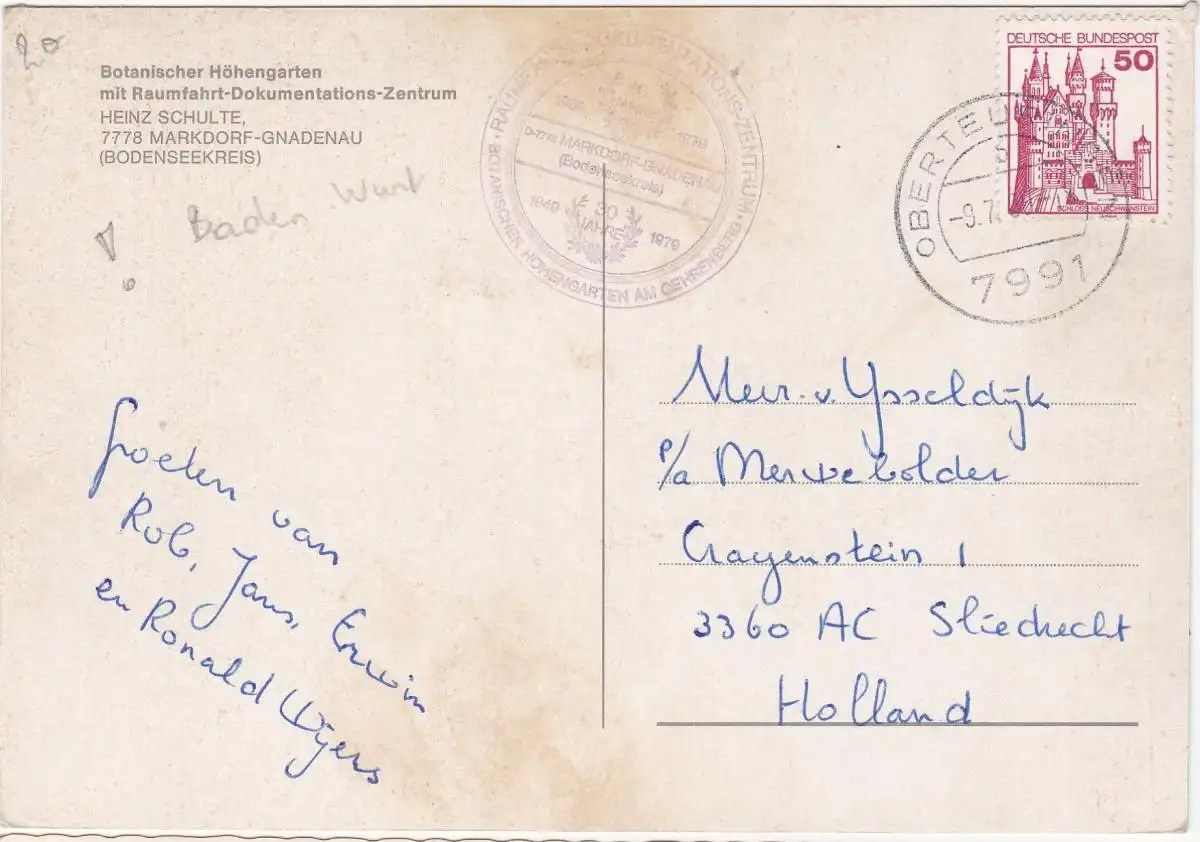 20
Botanischer Höhengarten
mit Raumfahrt-Dokumentations-Zentrum
HEINZ SCHULTE,
7778 MARKDORF-GNADENAU
(BODENSEEKREIS)
Baden Wurt
Groeten van
Rob, Jans, Erwin
en Ronald Wijers
BOTANISCHER HÖHENGARTEN AM GEHRENBERG · RAUMFAHRT-DOKUMENTATIONS-ZENTRUM ·
10
1979
D-7778 MARKDORF-GNADENAU
(Bodenseekreis)
1949 30 JAHRE 1979
DEUTSCHE BUNDESPOST
50
SCHLOSS NEUSCHWANSTEIN
-9.7.
7991
Meur. v. Ysseldijk
p/a Merwebolder
Crayenstein 1
3360 AC Sliedrecht
Holland